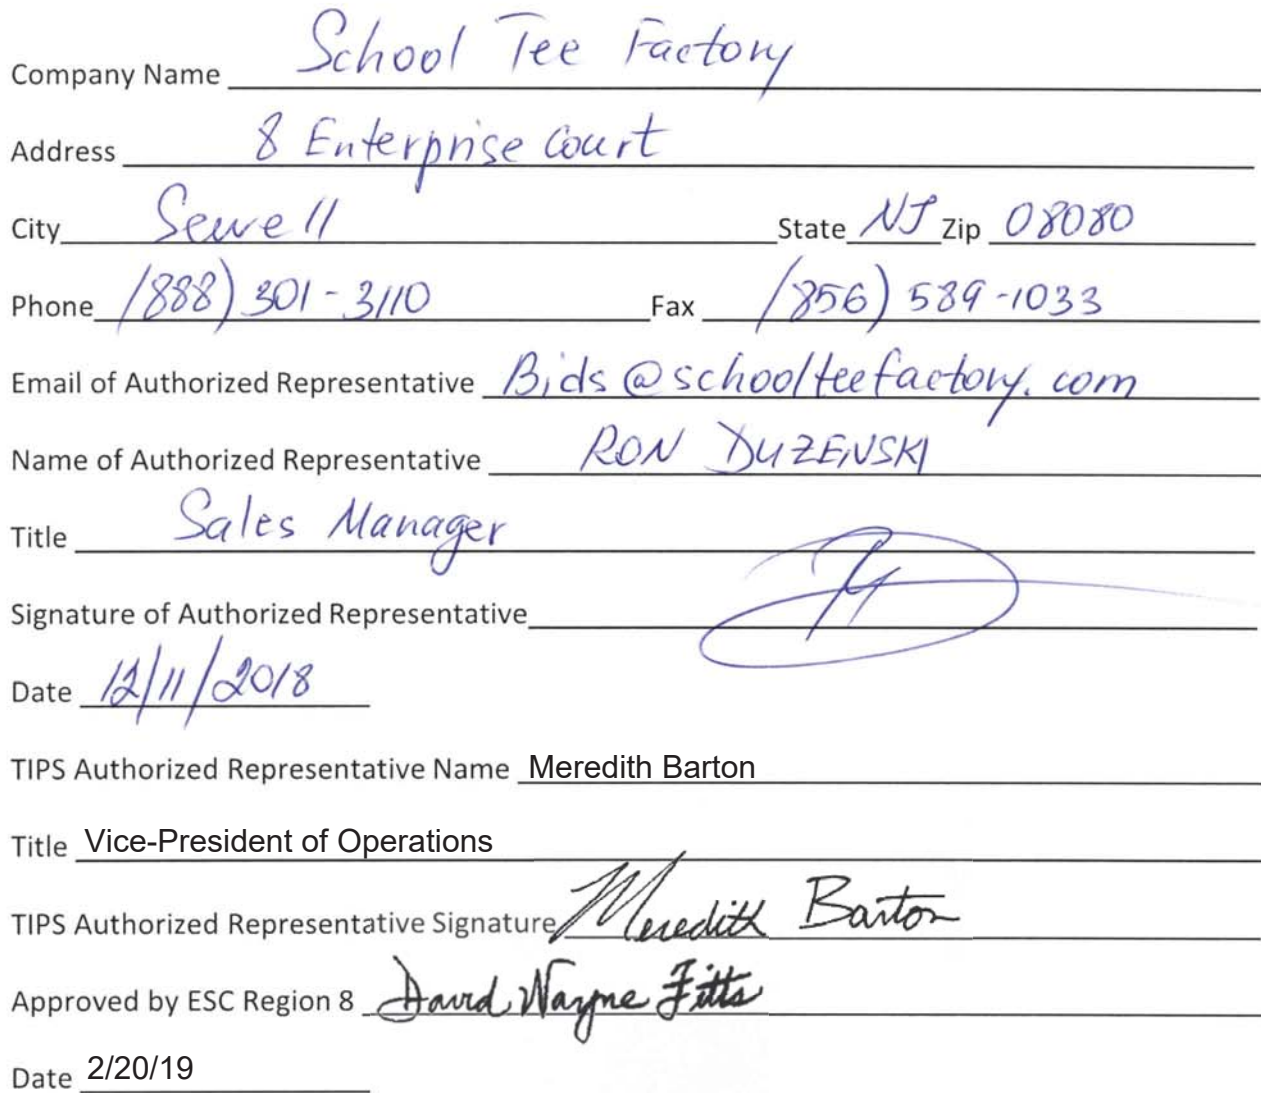 Company Name School Tee Factory
Address 8 Enterprise Court
City Sewell State NJ Zip 08080
Phone (888) 301-3110 Fax (856) 589-1033
Email of Authorized Representative Bids@schoolteefactory.com
Name of Authorized Representative RON DUZENSKI
Title Sales Manager
Signature of Authorized Representative
Date 12/11/2018
TIPS Authorized Representative Name Meredith Barton
Title Vice-President of Operations
TIPS Authorized Representative Signature Meredith Barton
Approved by ESC Region 8 David Wayne Fitts
Date 2/20/19